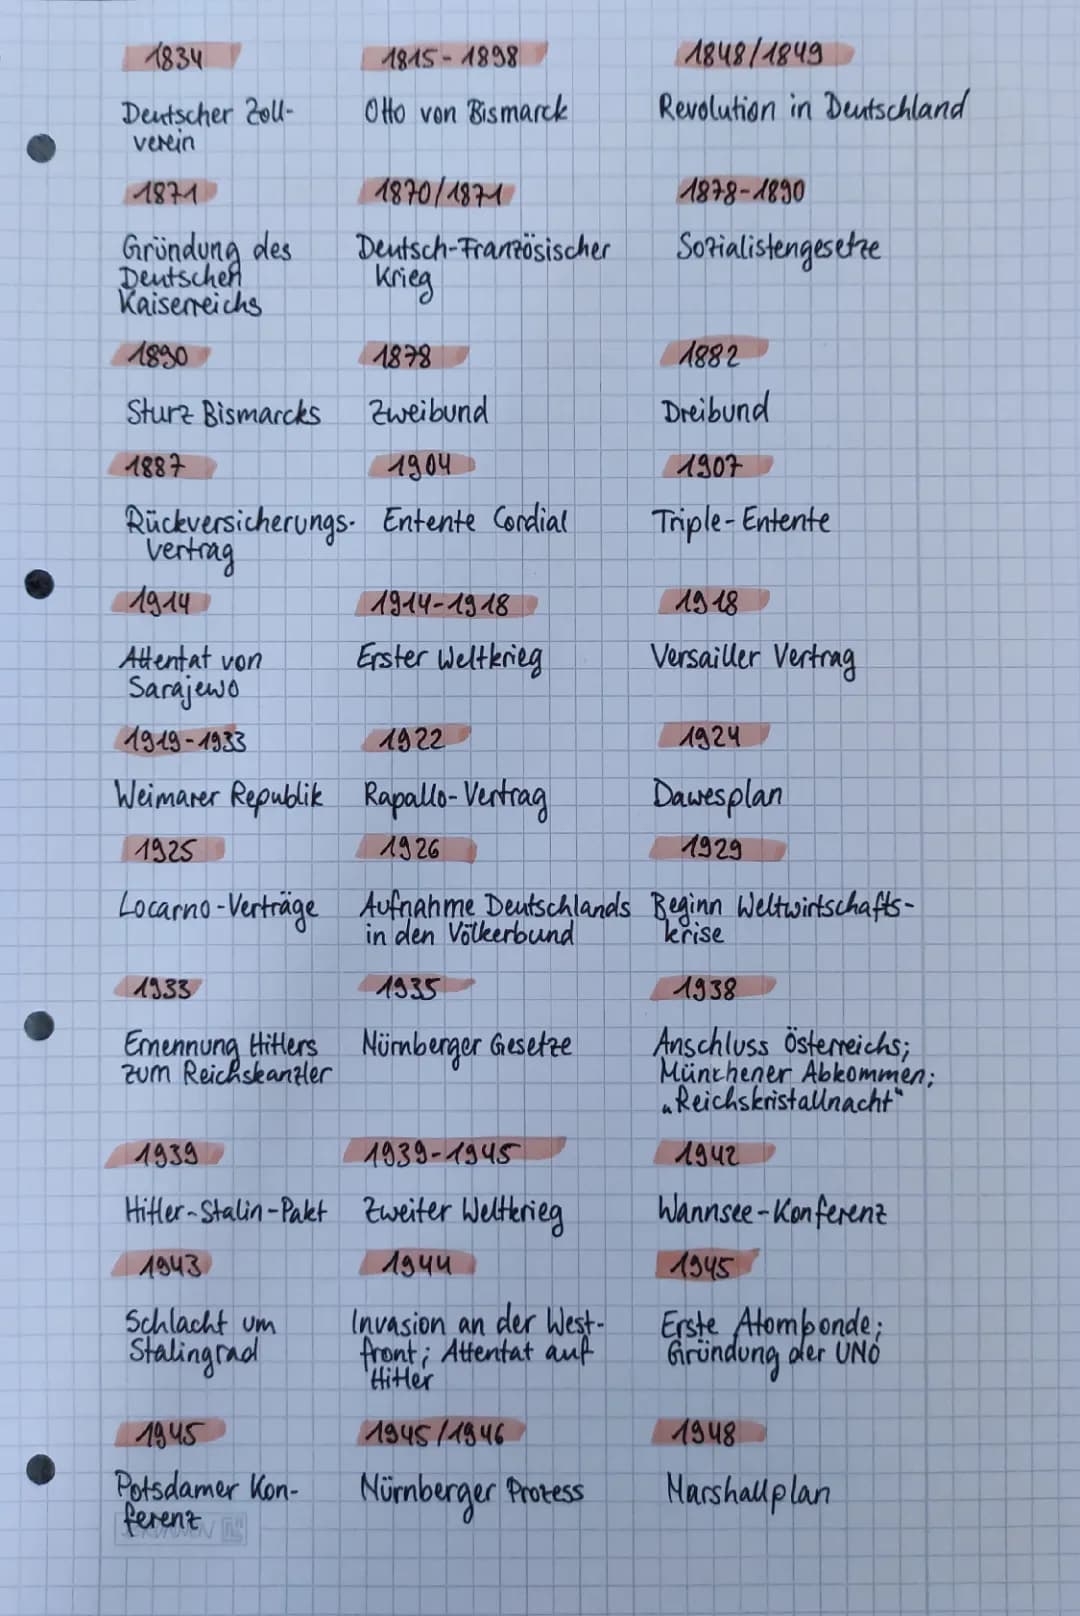 1834 1815-1898 1848/1849
Deutscher Zoll- Otto von Bismarck Revolution in Deutschland
verein
1871 1870/1871 1878-1890
Gründung des Deutsch-Französischer Sozialistengesetze
Deutschen Krieg
Kaiserreichs
1890 1878 1882
Sturz Bismarcks Zweibund Dreibund
1887 1904 1907
Rückversicherungs- Entente Cordial Triple-Entente
vertrag
1914 1914-1918 1918
Attentat von Erster Weltkrieg Versailler Vertrag
Sarajewo
1919-1933 1922 1924
Weimarer Republik Rapallo-Vertrag Dawesplan
1925 1926 1929
Locarno-Verträge Aufnahme Deutschlands Beginn Weltwirtschafts-
in den Völkerbund krise
1933 1935 1938
Ernennung Hitlers Nürnberger Gesetze Anschluss Österreichs;
zum Reichskanzler Münchener Abkommen;
„Reichskristallnacht"
1939 1939-1945 1942
Hitler-Stalin-Pakt Zweiter Weltkrieg Wannsee-Konferenz
1943 1944 1945
Schlacht um Invasion an der West- Erste Atombonde;
Stalingrad front; Attentat auf Gründung der UNO
Hitler
1945 1945/1946 1948
Potsdamer Kon- Nürnberger Prozess Marshallplan
ferenz